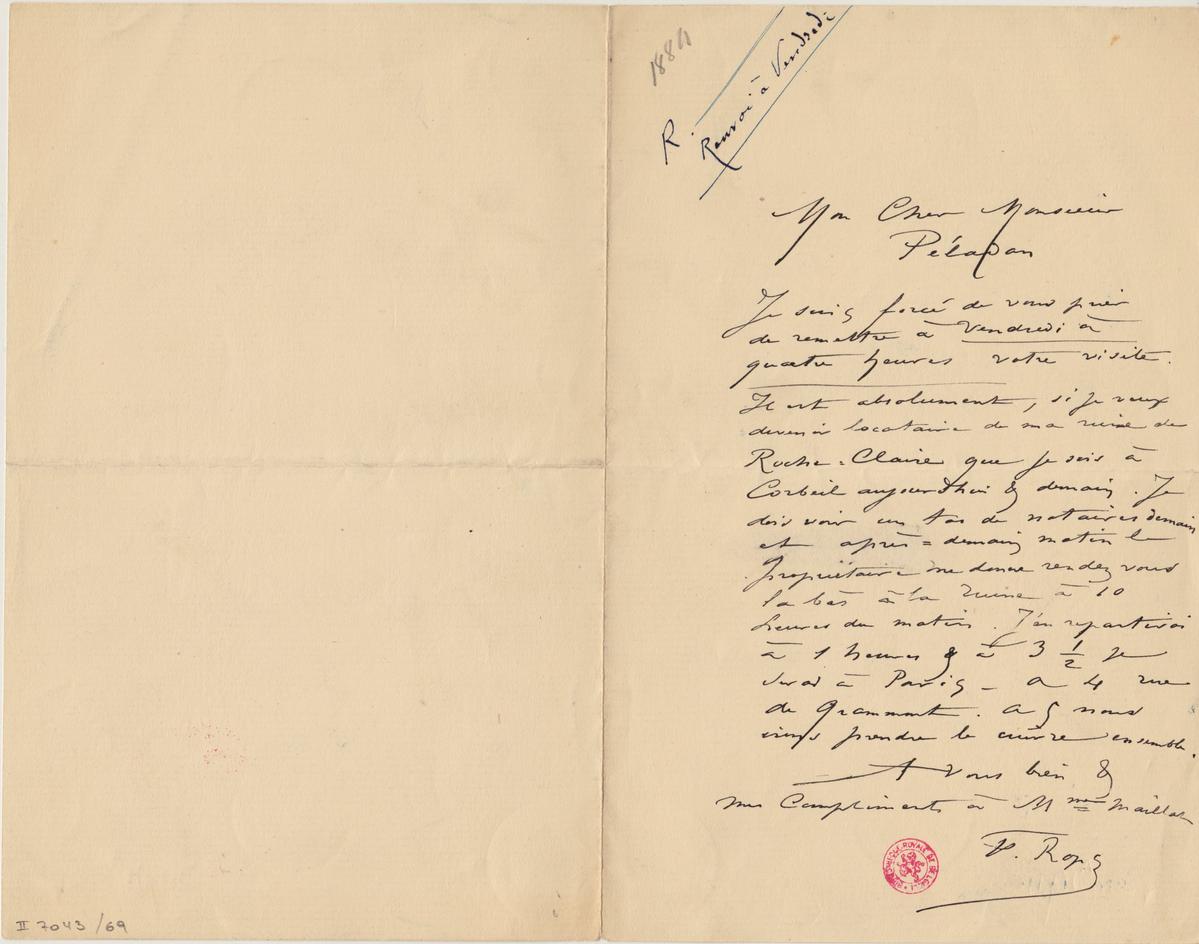 1884
R.
Renvoi à Vendredi
Mon Cher Monsieur
Péladan
Je suis forcé de vous prier
de remettre à Vendredi à
quatre heures votre visite.
Il est absolument, si je veux
devenir locataire de ma ruine de
Roche-Claire que je sois à
Corbeil aujourd'hui & demain. Je
dois voir un tas de notaires demain
et après=demain matin le
propriétaire me donne rendez vous
la bas à la ruine à 10
heures du matin. J'en repartirai
à 1 heures & à 3 1/2 je
serai à Paris - a 4 rue
de Grammont. a 5 nous
irons prendre le cuivre ensemble.
A vous bien &
mes Compliments à Mme Maillat
F. Rops
BIBLIOTHÈQUE ROYALE DE BELGIQUE
II 7043 /69